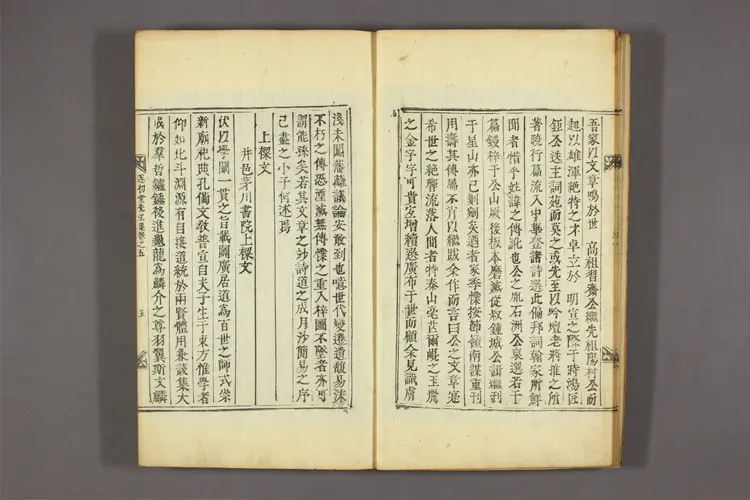 吾家以文章鳴於世 高祖習齋公繼先祖陽村公而
起以雄渾絶特之才卓立於 明宣之際于時鴻匠
鉅公迭主詞苑而莫之或先至以吟壇老將推之所
著曉行篇流入中華登諸詩選此偏邦詞翰家所鮮
聞者惜乎姓諱之傳訛也公之胤石洲公裒選若干
篇鋟梓于公山厥後板本磨滅從叔鍾城公諿繼刊
于星山亦已剜剜矣迺者家季慄按節嶺南謀重刊
用壽其傳屬不肖以繼跋余作而言曰公之文章寔
希世之絶響流落人間者特泰山毫芒爾斷之玉屑
之金字字可貴寔增續選廣布于世而顧余見識膚
淺未闖藩蘺議論安敢到也噫世代變遷遺馥易沬
不朽之傳恐湮滅無傳慄之重入梓圖不墜者亦可
謂能孫矣若其文章之妙詩道之成月沙簡易之序
已盡之小子何述焉
上樑文
井邑茅川書院上樑文
伏以學闡一貫之旨載闢廣居道爲百世之師式崇
新廟祀典孔備文敎普宣自夫子生于東方惟學者
仰如北斗淵源有自接道統於兩賢體用兼該集大
成於羣哲繼繇後進龜龍爲鱗介之尊羽翼斯文麟
遂初堂先生集卷之五
五